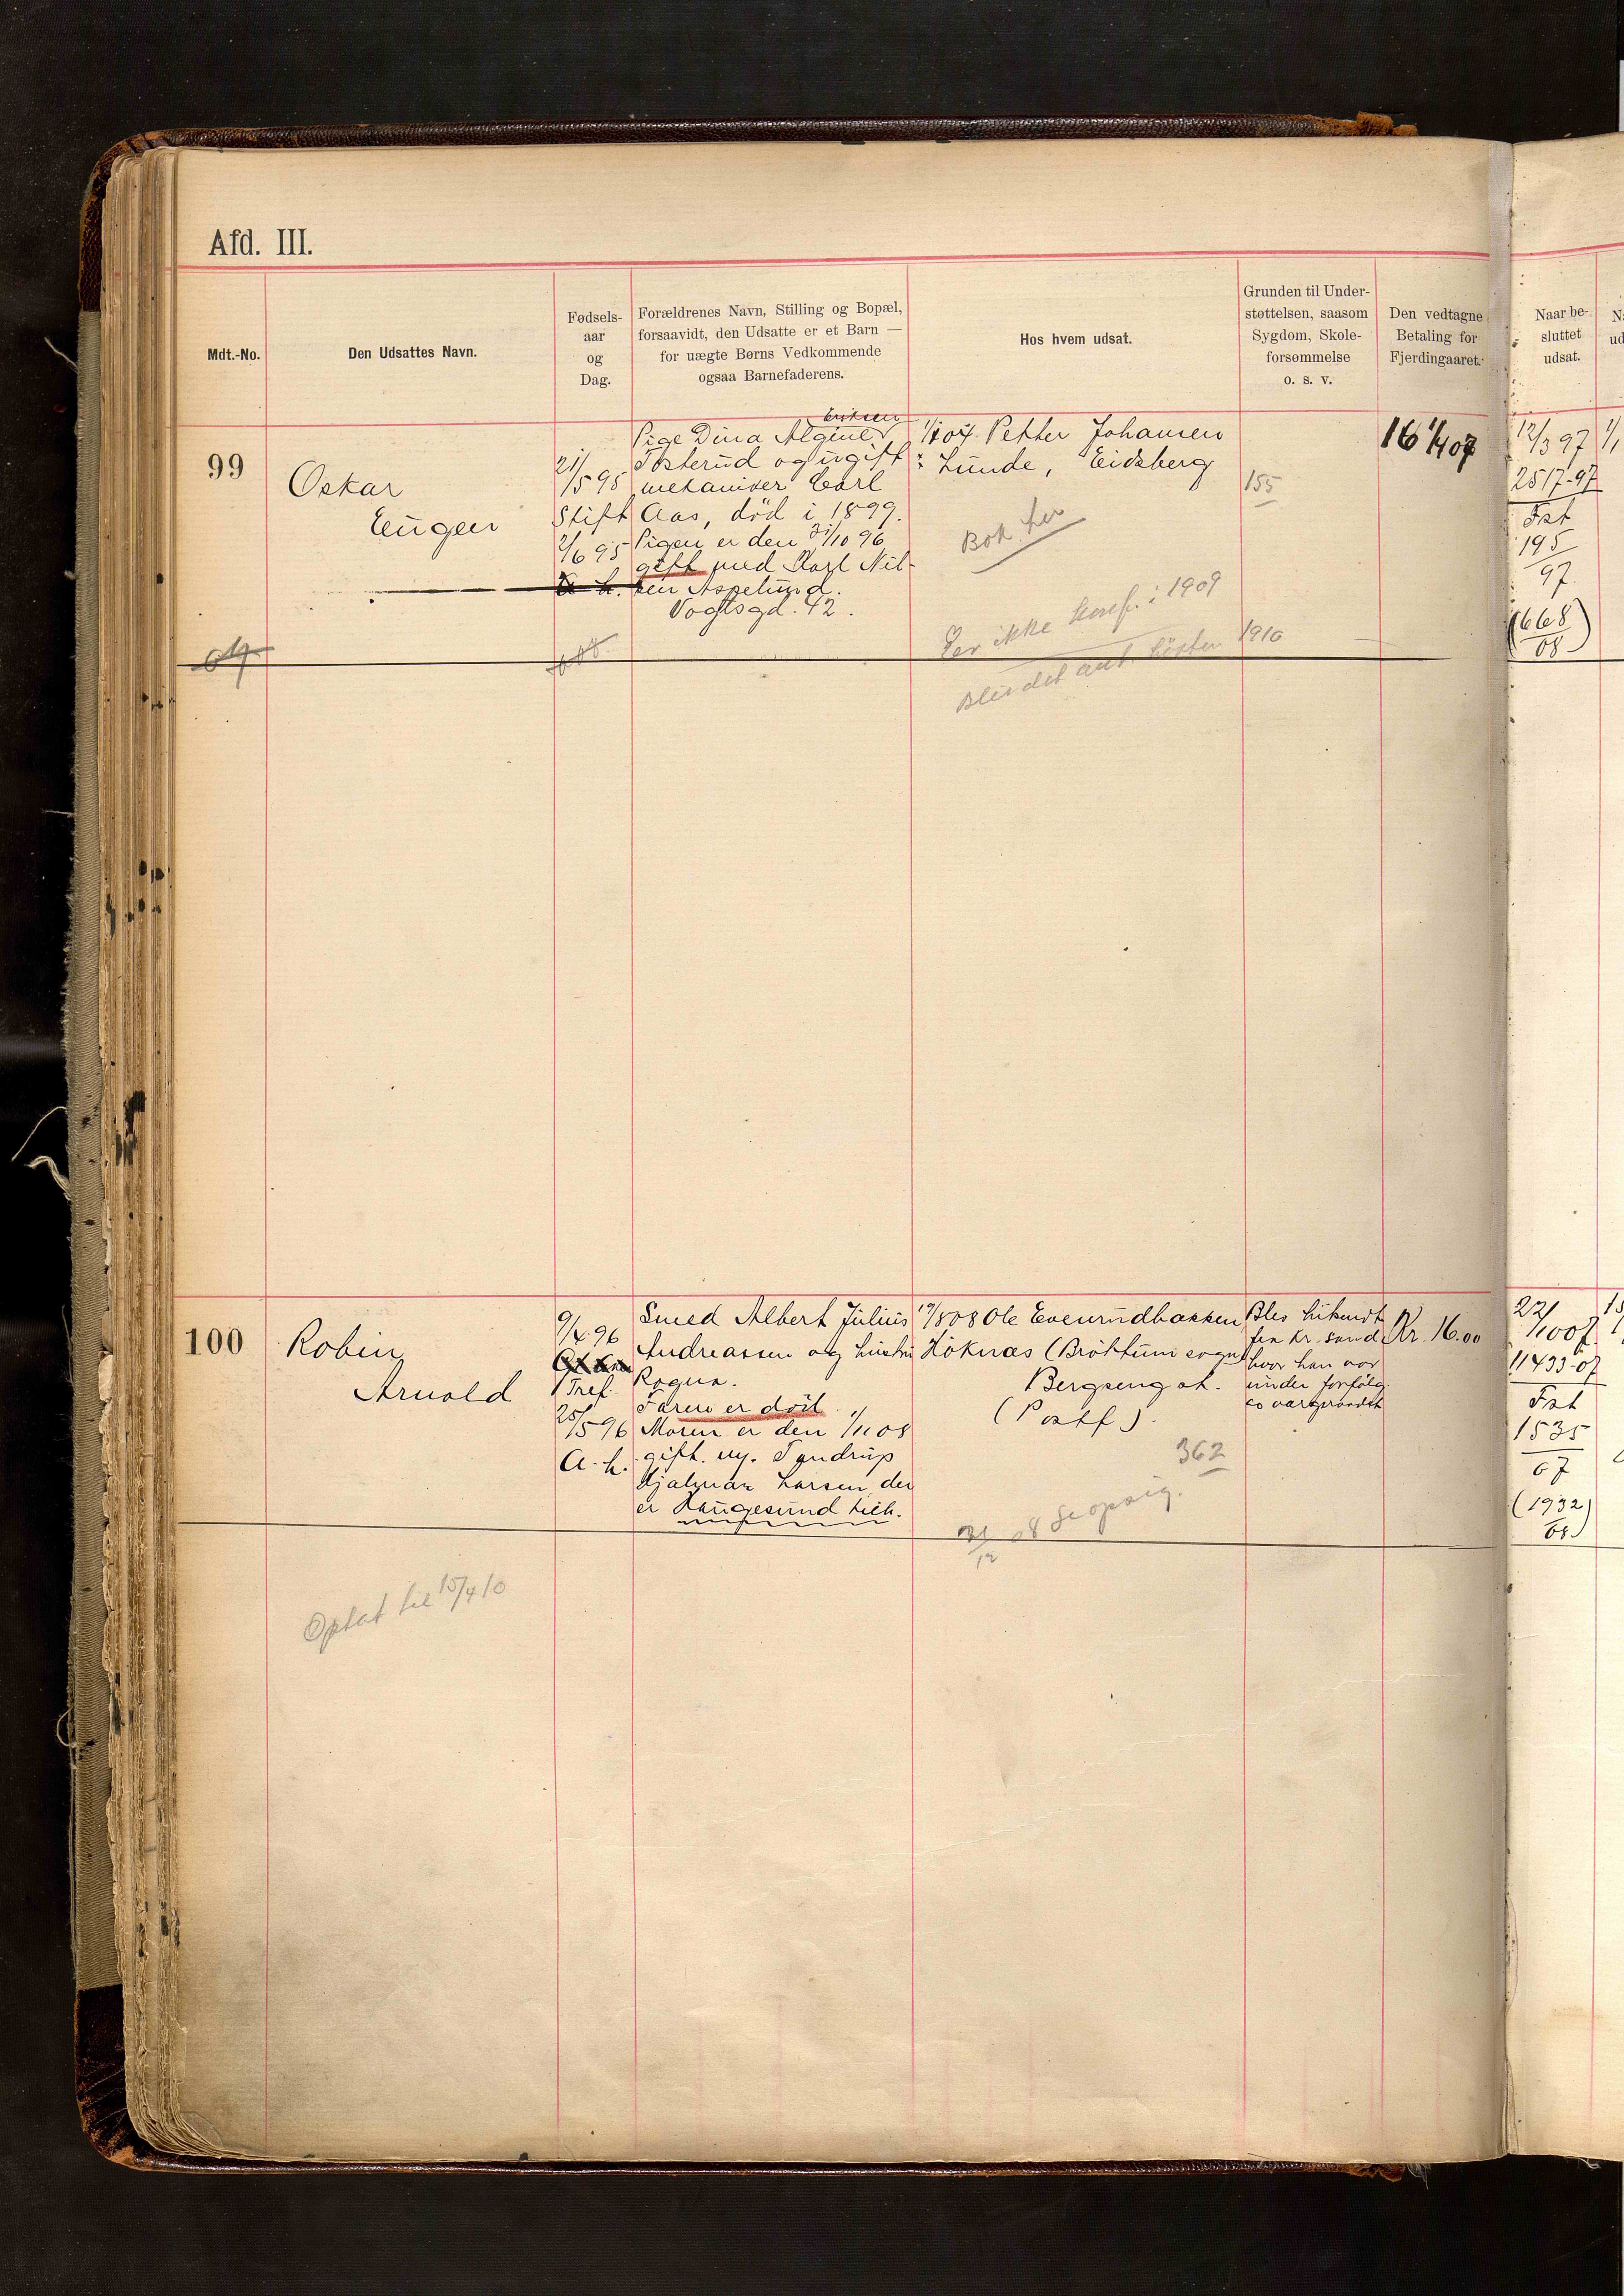 Afd. III.
Mdt.-No.
Den Udsattes Navn.
Fødsels-
aar
og
Dag.
Forældrenes Navn, Stilling og Bopæl,
forsaavidt, den Udsatte er et Barn —
for uægte Børns Vedkommende
ogsaa Barnefaderens.
Hos hvem udsat.
Grunden til Under-
støttelsen, saasom
Sygdom, Skole-
forsømmelse
o. s. v.
Den vedtagne
Betaling for
Fjerdingaaret.
Naar be-
sluttet
udsat.
99
Oskar
Eugen
21/5 95
Stift
2/6 95
Eriksen
Pige Dina Algine
Tosterud og ugift
mekaniker Carl
Aas, död i 1899.
Pigen er den 31/10 96
gift med Karl Nil-
sen Aspelund.
Vogtsgd. 42.
1/1 04 Petter Johansen
Lunde, Eidsberg
Bok her
Er ikke konf. i 1909
Blir det ant. hösten 1910
155
16 1/4 07
12/3 97
2517-97
Fat
195
97
(668
08)
100
Robin
Arnold
9/4 96
Tref.
25/5 96
A. k.
Smed Albert Julius
Andreassen og hustru
Ragna.
Faren er död
Moren er den 1/11 08
gift. m. Tandrup
Hjalmar Larsen, der
er Haugesund hjeh.
17/8 08 Ole Evenrudbakken
Höknas (Bröttum sogn
Bergseng ak.
(Postf).
362
Blev hitsendt
fra Kr. sand
hvor han var
under forfölg.
Kr. 16.00
22/10 07
11433-07
Fat
1535
07
(1932)
08)
Optat til 15/4 10